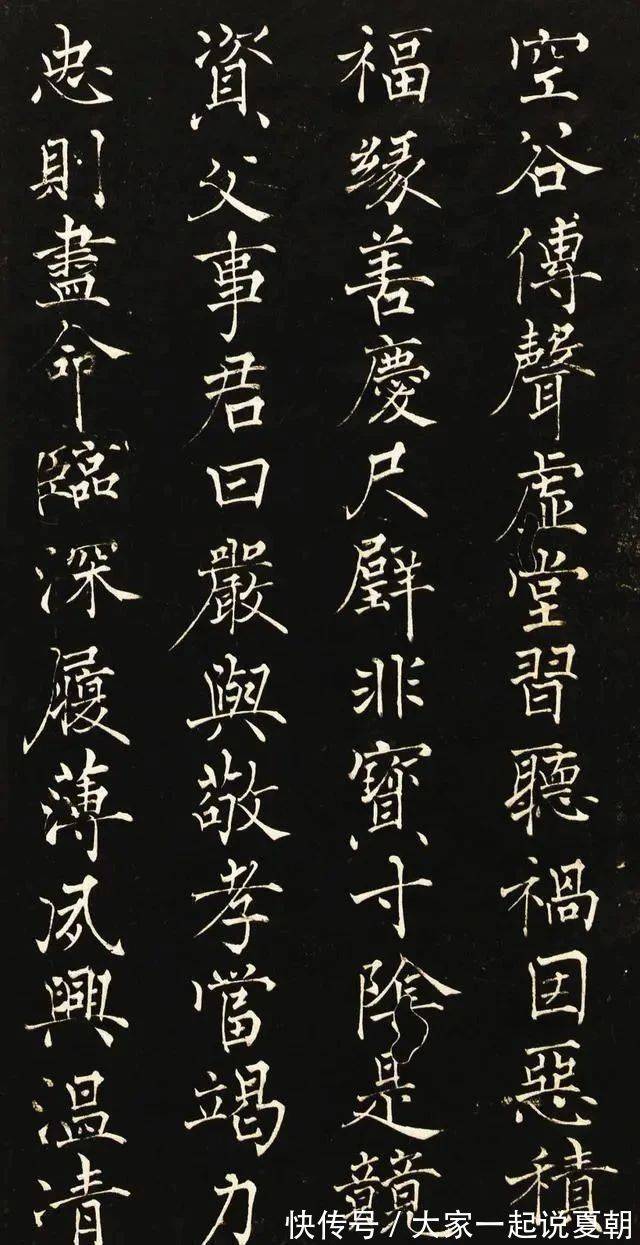 空谷傳聲虛堂習聽禍因惡積
福緣善慶尺璧非寶寸陰是競
資父事君曰嚴與敬孝當竭力
忠則盡命臨深履薄夙興溫清
快传号 / 大家一起说夏朝